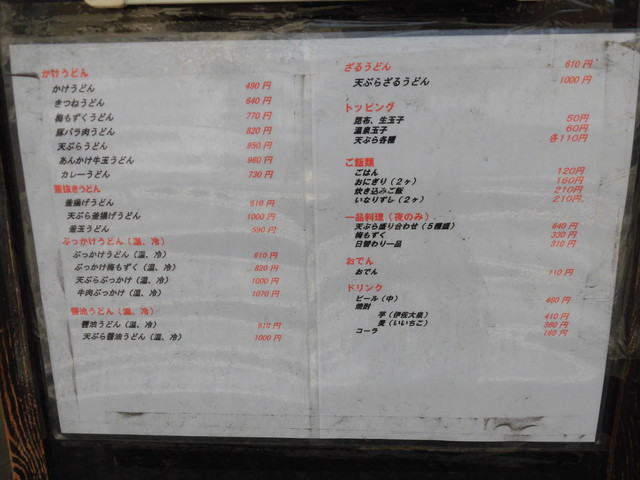 かけうどん
かけうどん 490 円
きつねうどん 640 円
梅もずくうどん 770 円
豚バラ肉うどん 820 円
天ぷらうどん 850 円
あんかけ牛玉うどん 960 円
カレーうどん 730 円
釜抜きうどん
釜揚げうどん 510 円
天ぷら釜揚げうどん 1000 円
釜玉うどん 590 円
ぶっかけうどん（温、冷）
ぶっかけうどん（温、冷） 610 円
ぶっかけ梅もずく（温、冷） 820 円
天ぷらぶっかけ（温、冷） 1000 円
牛肉ぶっかけ（温、冷） 1070 円
醤油うどん（温、冷）
醤油うどん（温、冷） 610 円
天ぷら醤油うどん（温、冷） 1000 円
ざるうどん 610 円
天ぷらざるうどん 1000 円
トッピング
昆布、生玉子 50円
温泉玉子 60円
天ぷら各種 各110円
ご飯類
ごはん 120円
おにぎり（２ヶ） 160円
炊き込みご飯 210円
いなりずし（２ヶ） 210円
一品料理（夜のみ）
天ぷら盛り合わせ（５種盛） 640 円
梅もずく 330 円
日替わり一品 310 円
おでん
おでん 110 円
ドリンク
ビール（中） 460 円
焼酎
芋（伊佐大泉） 410 円
麦（いいちこ） 360 円
コーラ 160 円